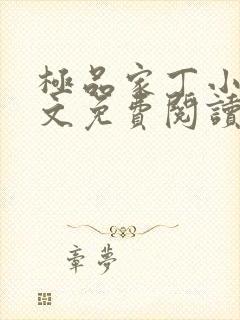 極品家丁小
文免費閱讀
章夢